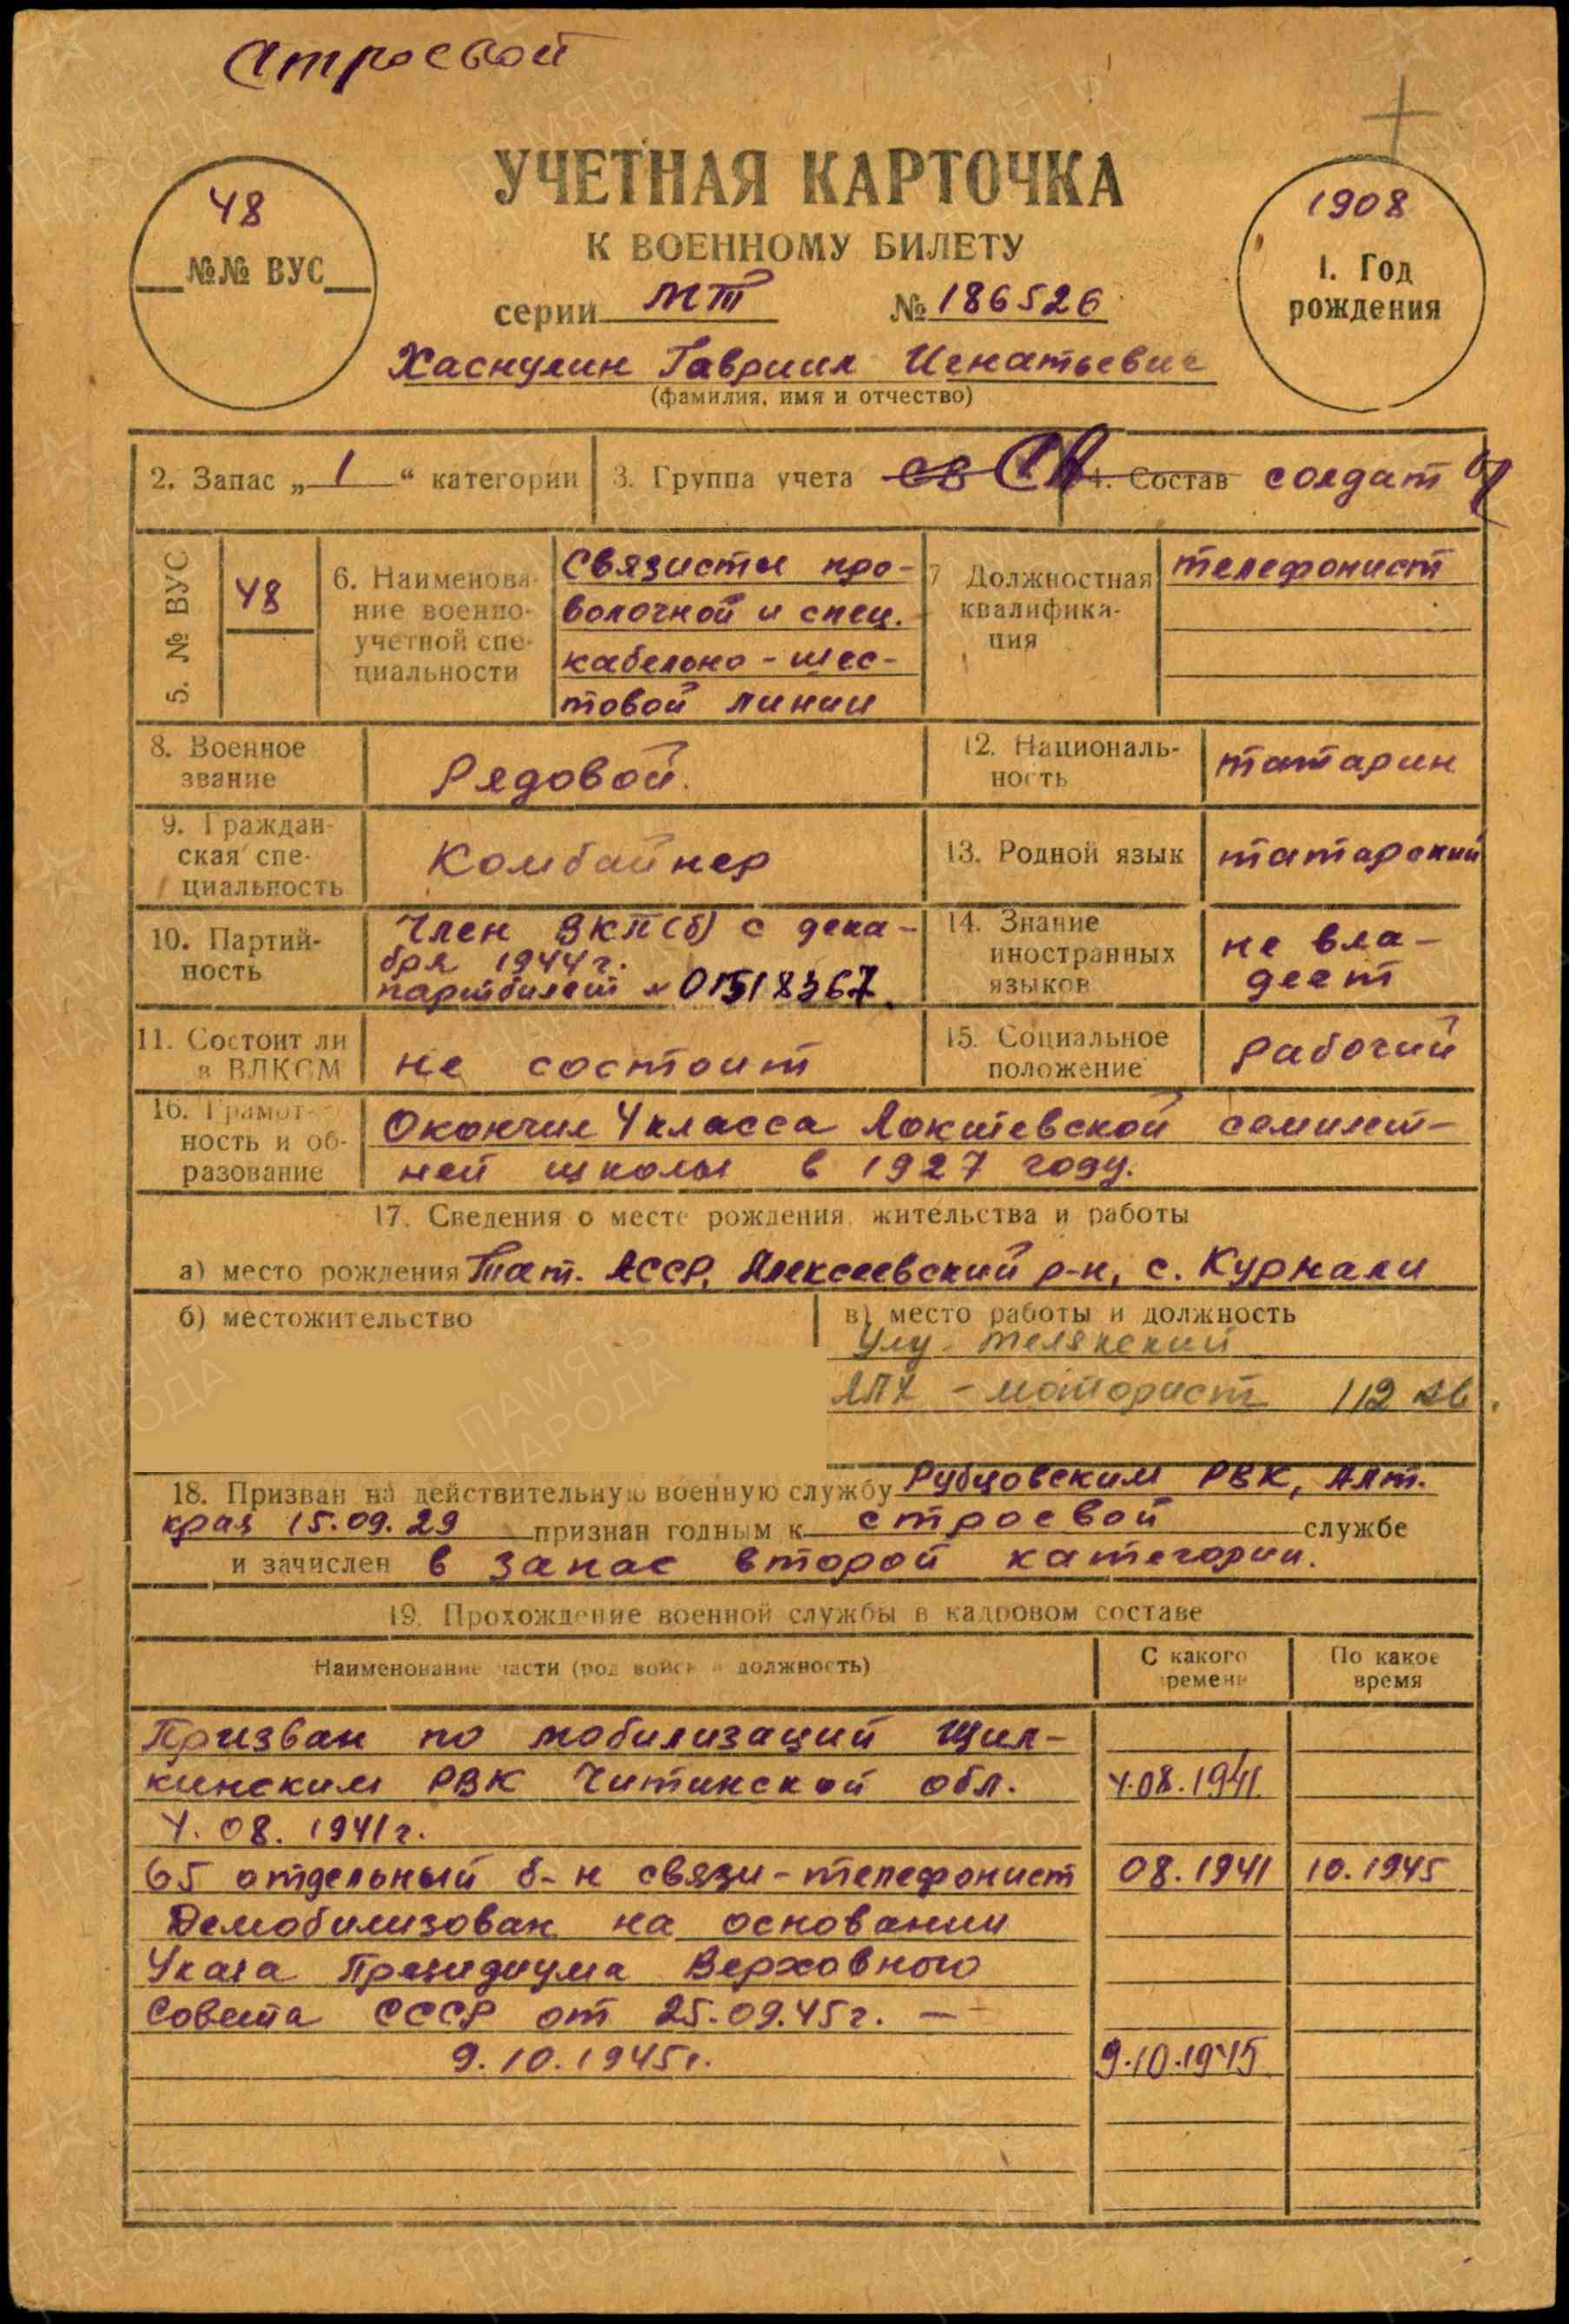 Строевой
УЧЕТНАЯ КАРТОЧКА
К ВОЕННОМУ БИЛЕТУ
48
№№ ВУС
1908
1. Год
рождения
серии МТ № 186526
Хаснулин Гавриил Игнатьевич
(фамилия, имя и отчество)
2. Запас „1“ категории
3. Группа учета св СА
4. Состав солдат
5. № ВУС
48
6. Наименова-
ние военно-
учетной спе-
циальности
Связисты про-
волочной и спец.
кабельно - шес-
товой линии
7 Должностная
квалифика-
ция
телефонист
8. Военное
звание
Рядовой.
12. Националь-
ность
татарин
9. Граждан-
ская спе-
циальность
Комбайнер
13. Родной язык
татарский
10. Партий-
ность
Член ВКП(б) с дека-
бря 1944г.
партбилет № 01518367
14. Знание
иностранных
языков
не вла-
деет
11. Состоит ли
в ВЛКСМ
не состоит
15. Социальное
положение
рабочий
16. Грамот-
ность и об-
разование
Окончил 4 класса Локтевской семилет-
ней школы в 1927 году.
17. Сведения о месте рождения, жительства и работы
а) место рождения Тат. АССР, Алексеевский р-н, с. Курнали
б) местожительство
в) место работы и должность
Улу-Телякский
ЛПХ - моторист 112 кв.
18. Призван на действительную военную службу Рубцовским РВК, Алт.
края 15.09.29 признан годным к строевой службе
и зачислен в запас второй категории.
19. Прохождение военной службы в кадровом составе
Наименование части (род войск и должность)
С какого
времени
По какое
время
Призван по мобилизаций Шил-
кинским РВК Читинской обл. 4.08.1941
4. 08. 1941г.
65 отдельный б-н связи - телефонист 08.1941 10.1945
Демобилизован на основании
Указа Президиума Верховного
Совета СССР от 25.09.45г. —
9.10.1945г. 9.10.1945
ПАМЯТЬ
НАРОДА